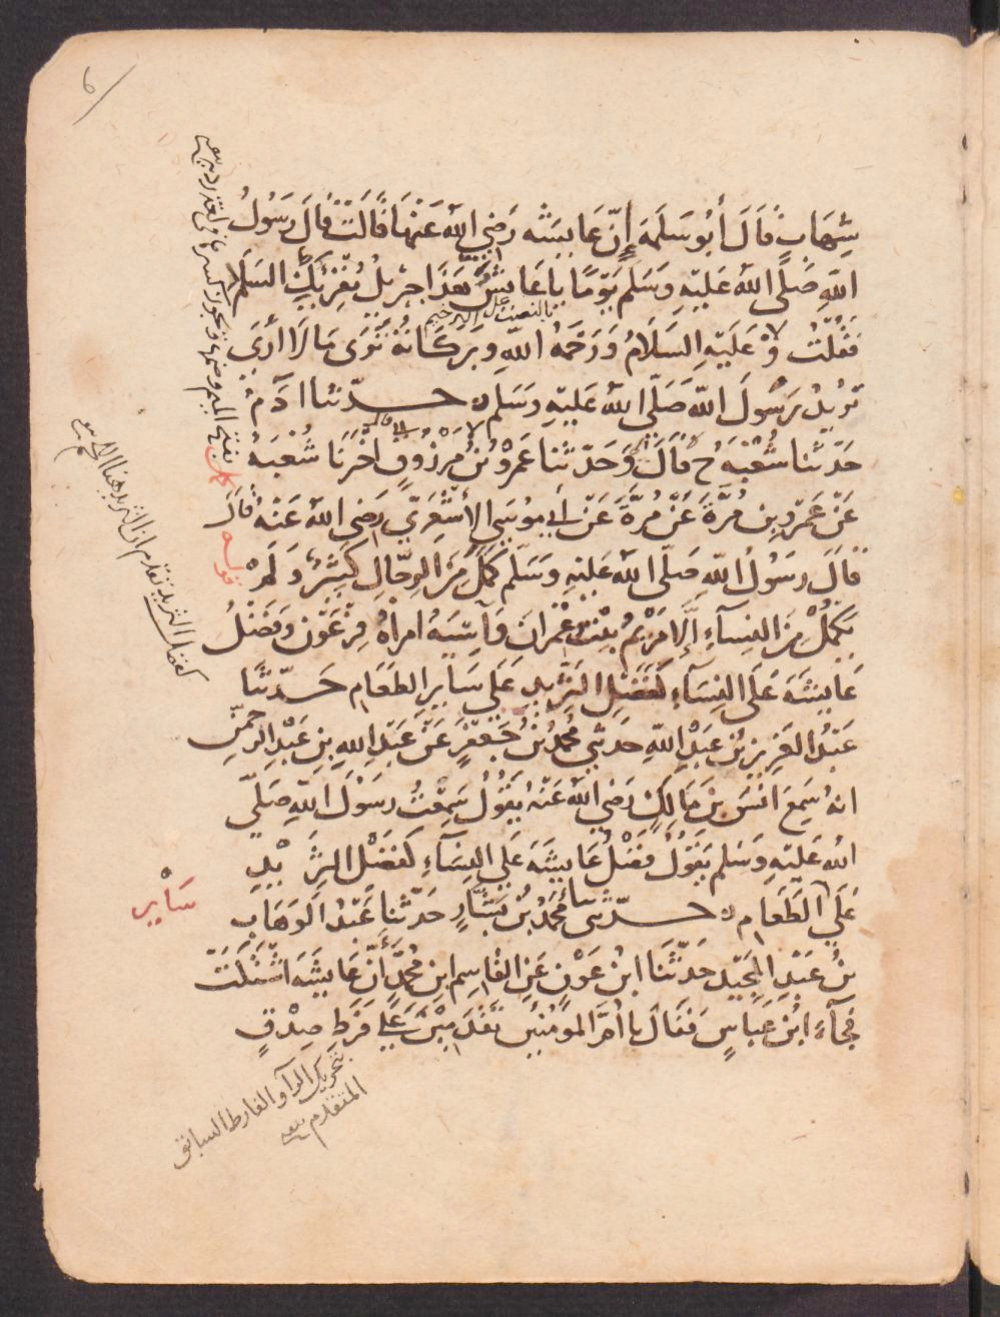 ٦
شِهَابٍ قَالَ أَبُو سَلَمَةَ إِنَّ عَايِشَه رَضِي اللهُ عَنْهَا قَالَتْ قَالَ رَسُولُ
اللهِ صَلَّى اللهُ عَلَيْهِ وَسَلَم يَوْمًا يا عَايِشُ هَذَا جِبْرِيلُ يُقْرِئكِ السَلَامَ
بالنصب على الترخيم
فَقُلْتُ وَعَلَيْهِ السَلَامُ وَرَحْمَةُ اللهِ وبَرَكَاتُهُ تَرَى مَا لَا أَرَى
تريدُ رَسُولَ اللهِ صَلَّى اللهُ عَلَيْهِ وَسَلم حدّثنا آدَمُ
حَدّثنا شُعْبَةُ ح قَالَ وَحَدّثنا عَمْرُو بْنُ مَرْزُوقٍ اخْبَرَنَا شُعْبَةُ
عَنْ عَمْرِو بنِ مُرَّةَ عَنْ مُرَّةَ عَنْ أَبِي مُوسَى الأَشْعَرِيِّ رَضِى اللهُ عَنْهُ قَالَ
قَالَ رسُولُ اللهِ صَلَّى اللهُ عَلَيْهِ وَسَلّم كَمُلَ مِنَ الرِجَالِ كَثِيرٌ وَلَمْ
يَكْمُلْ مِنَ النِسَآءِ إِلَّا مَرْيَمُ بِنْتُ عِمْرَانَ وَآسِيَةُ امرأةُ فِرْعَوْنَ وَفَضْلُ
عَايِشَةَ عَلَى النِسَآءِ كَفَضْلِ الثَرِيدِ عَلَى سَايِرِ الطَعَامِ حَدّثَنَا
عَبْدُ العَزِيزِ بْنُ عَبْدِ اللهِ حَدثني مُحَمدُ بْنُ جَعْفَرٍ عَنْ عَبْدِ اللهِ بنِ عَبْدِ الرحمنِ
انهُ سَمِعَ انَسَ بْنَ مَالِكٍ رَضِي اللهُ عَنْهُ يَقُولُ سَمِعْتُ رسَولَ اللهِ صَلَّى
اللهُ عَلَيْهِ وَسَلم يَقُولُ فَضْلُ عَايشَةَ عَلَى النِسَآءِ كَفَضْلِ الثَرِيْدِ
عَلَى الطَعَامِ حدّثنى مُحَمدُ بْنُ بَشَّارٍ حَدّثنا عَبْدُ الوَهَابِ
بْنُ عَبْدِ المَجِيدِ حَدّثَنَا ابنُ عَوْنٍ عَنِ القَاسِمِ ابنِ مُحمَّدٍ أَنَّ عَايشَةَ اشْتَكَتْ
فَجَآءَ ابْنُ عَبَاسٍ فَقَالَ يا أمَّ المومنِينَ تَقْدَمِينَ عَلَى فَرَطِ صِدْقٍ
بفتح الميم وضمها وتجوز كسرها
قوله كمل
سَايِر
بتحريك الرآ والفارط السابق
المتقدم